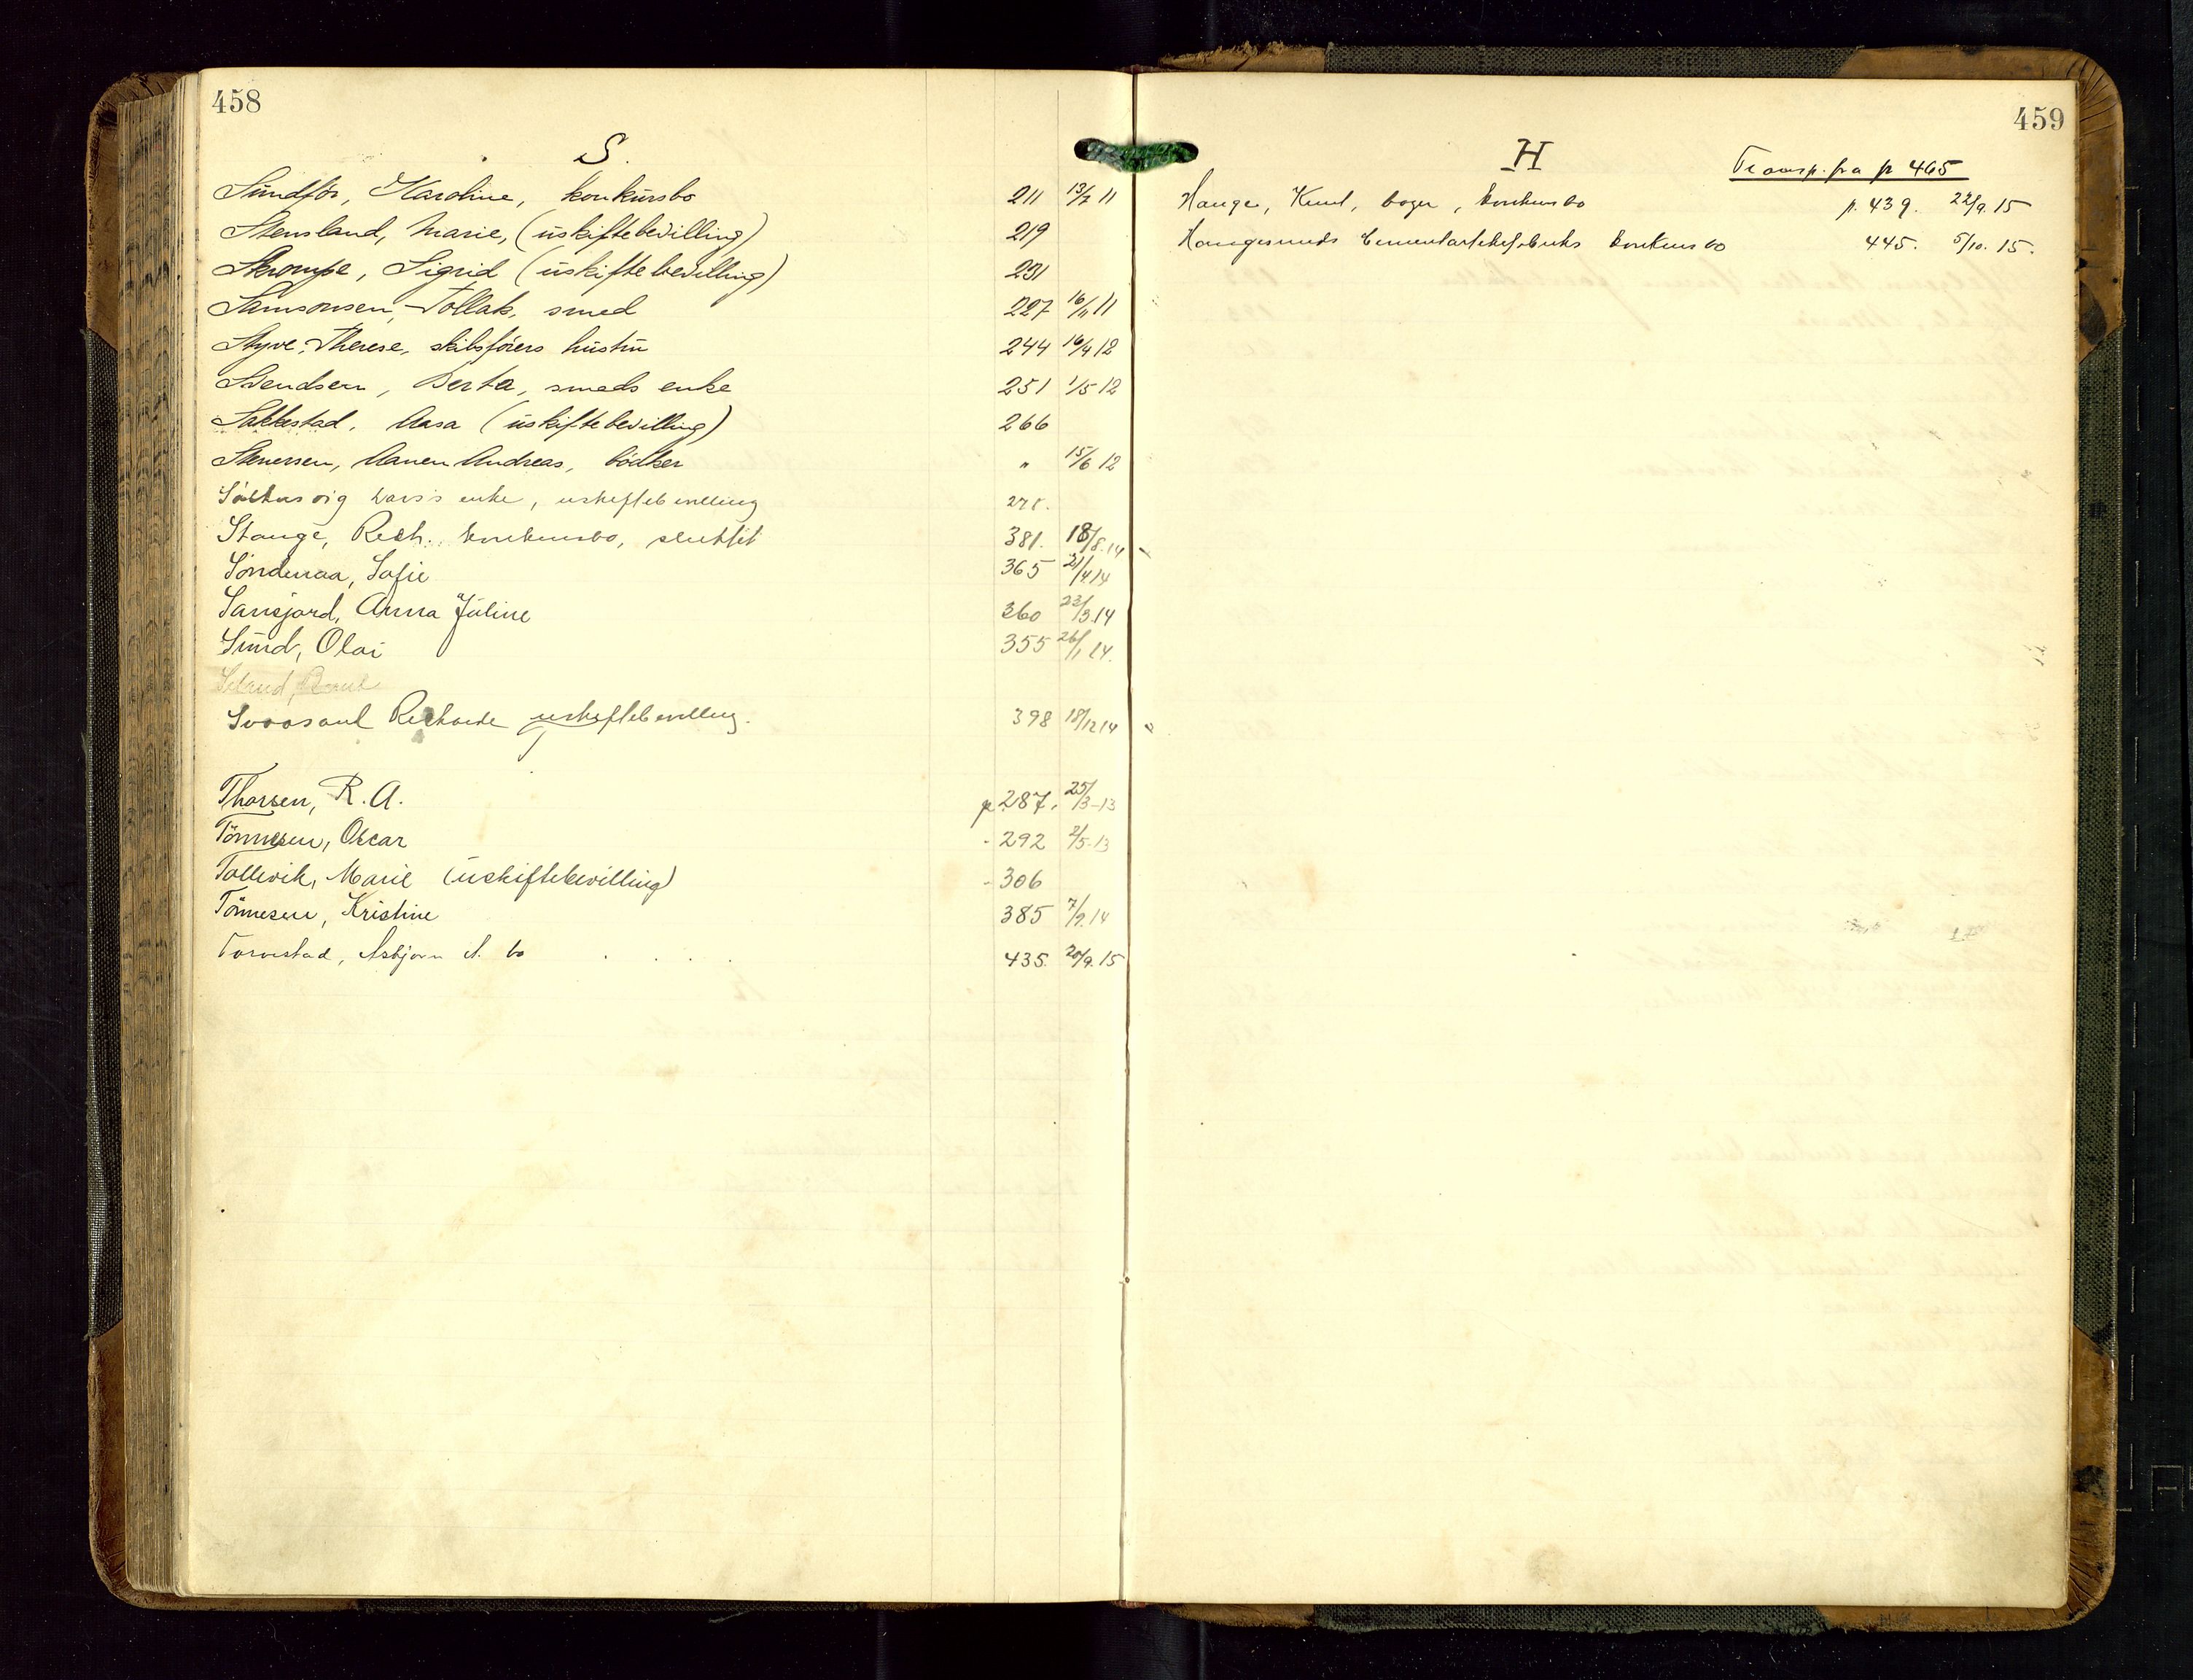 458
S.
Sundför, Karoline, konkursbo 211 13/7 11
Stensland, Marie, (uskiftebevilling) 219
Skrompe, Sigrid (uskiftebevilling) 231
Samsonsen, Tollak, smed 227 16/11 11
Styve, Therese, skibsförers hustru 244 16/4 12
Svendsen, Berta, smeds enke 251 1/5 12
Sakkestad, Aasa (uskiftebevilling) 266
Stenersen, Aanen Andreas, bödker " 15/6 12
enke, uskiftebevilling
Stange, Rich. konkursbo, sluttet 381. 18/8.14
Sönderaa, Sofie 365 21/4.14
Sansjord, Anna Juline 360 23/3.14
Sund, Olai 355 26/1 14.
uskiftebevilling. 398 18/12 14
Thorsen, R. A. p 287. 25/3-13
Tönnesen, Oscar - 292 2/5-13
Tollevik, Marie (uskiftebevilling) - 306
Tönnesen, Kristine 385 7/9.14
Torvestad, Asbjørn A. bo . . . . 435. 20/9. 15
459
H
Transp. fra p 465
Hauge, Knut, bager, konkursbo p. 439. 22/9. 15
Haugesunds konkursbo 445. 5/10. 15.